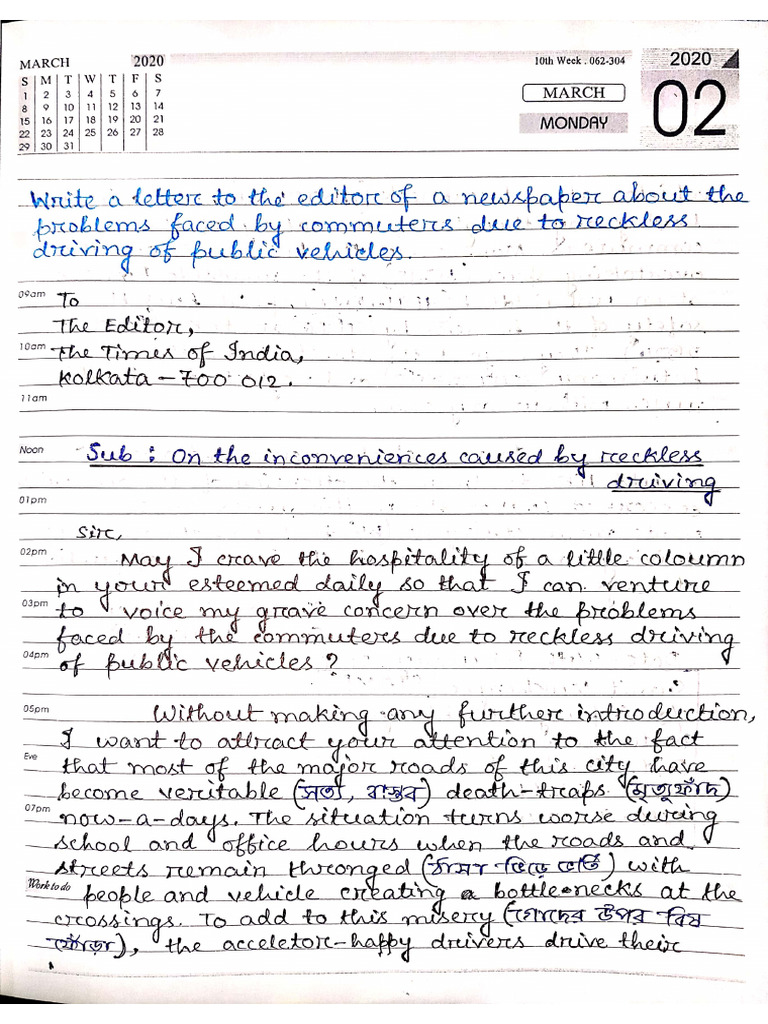 MARCH 2020
S M T W T F S
1 2 3 4 5 6 7
8 9 10 11 12 13 14
15 16 17 18 19 20 21
22 23 24 25 26 27 28
29 30 31
10th Week . 062-304
MARCH
MONDAY
2020
02
Write a letter to the editor of a newspaper about the
problems faced by commuters due to reckless
driving of public vehicles.
09am To
The Editor,
10am The Times of India,
Kolkata – 700 012.
11am
Noon Sub : On the inconveniences caused by reckless
driving
01pm
Sir,
02pm May I crave the hospitality of a little coloumn
in your esteemed daily so that I can venture
03pm to voice my grave concern over the problems
faced by the commuters due to reckless driving
04pm of public vehicles ?
05pm Without making any further introduction,
I want to attract your attention to the fact
Eve that most of the major roads of this city have
become veritable (সত্য, বাস্তব) death-traps (মৃত্যুফাঁদ)
07pm now-a-days. The situation turns worse during
school and office hours when the roads and
streets remain thronged (ঠাসা ভিড়ে ভর্তি) with
Work to do people and vehicle creating a bottle-necks at the
crossings. To add to this misery (গোদের উপর বিষ
ফোঁড়া), the acceletor-happy drivers drive their